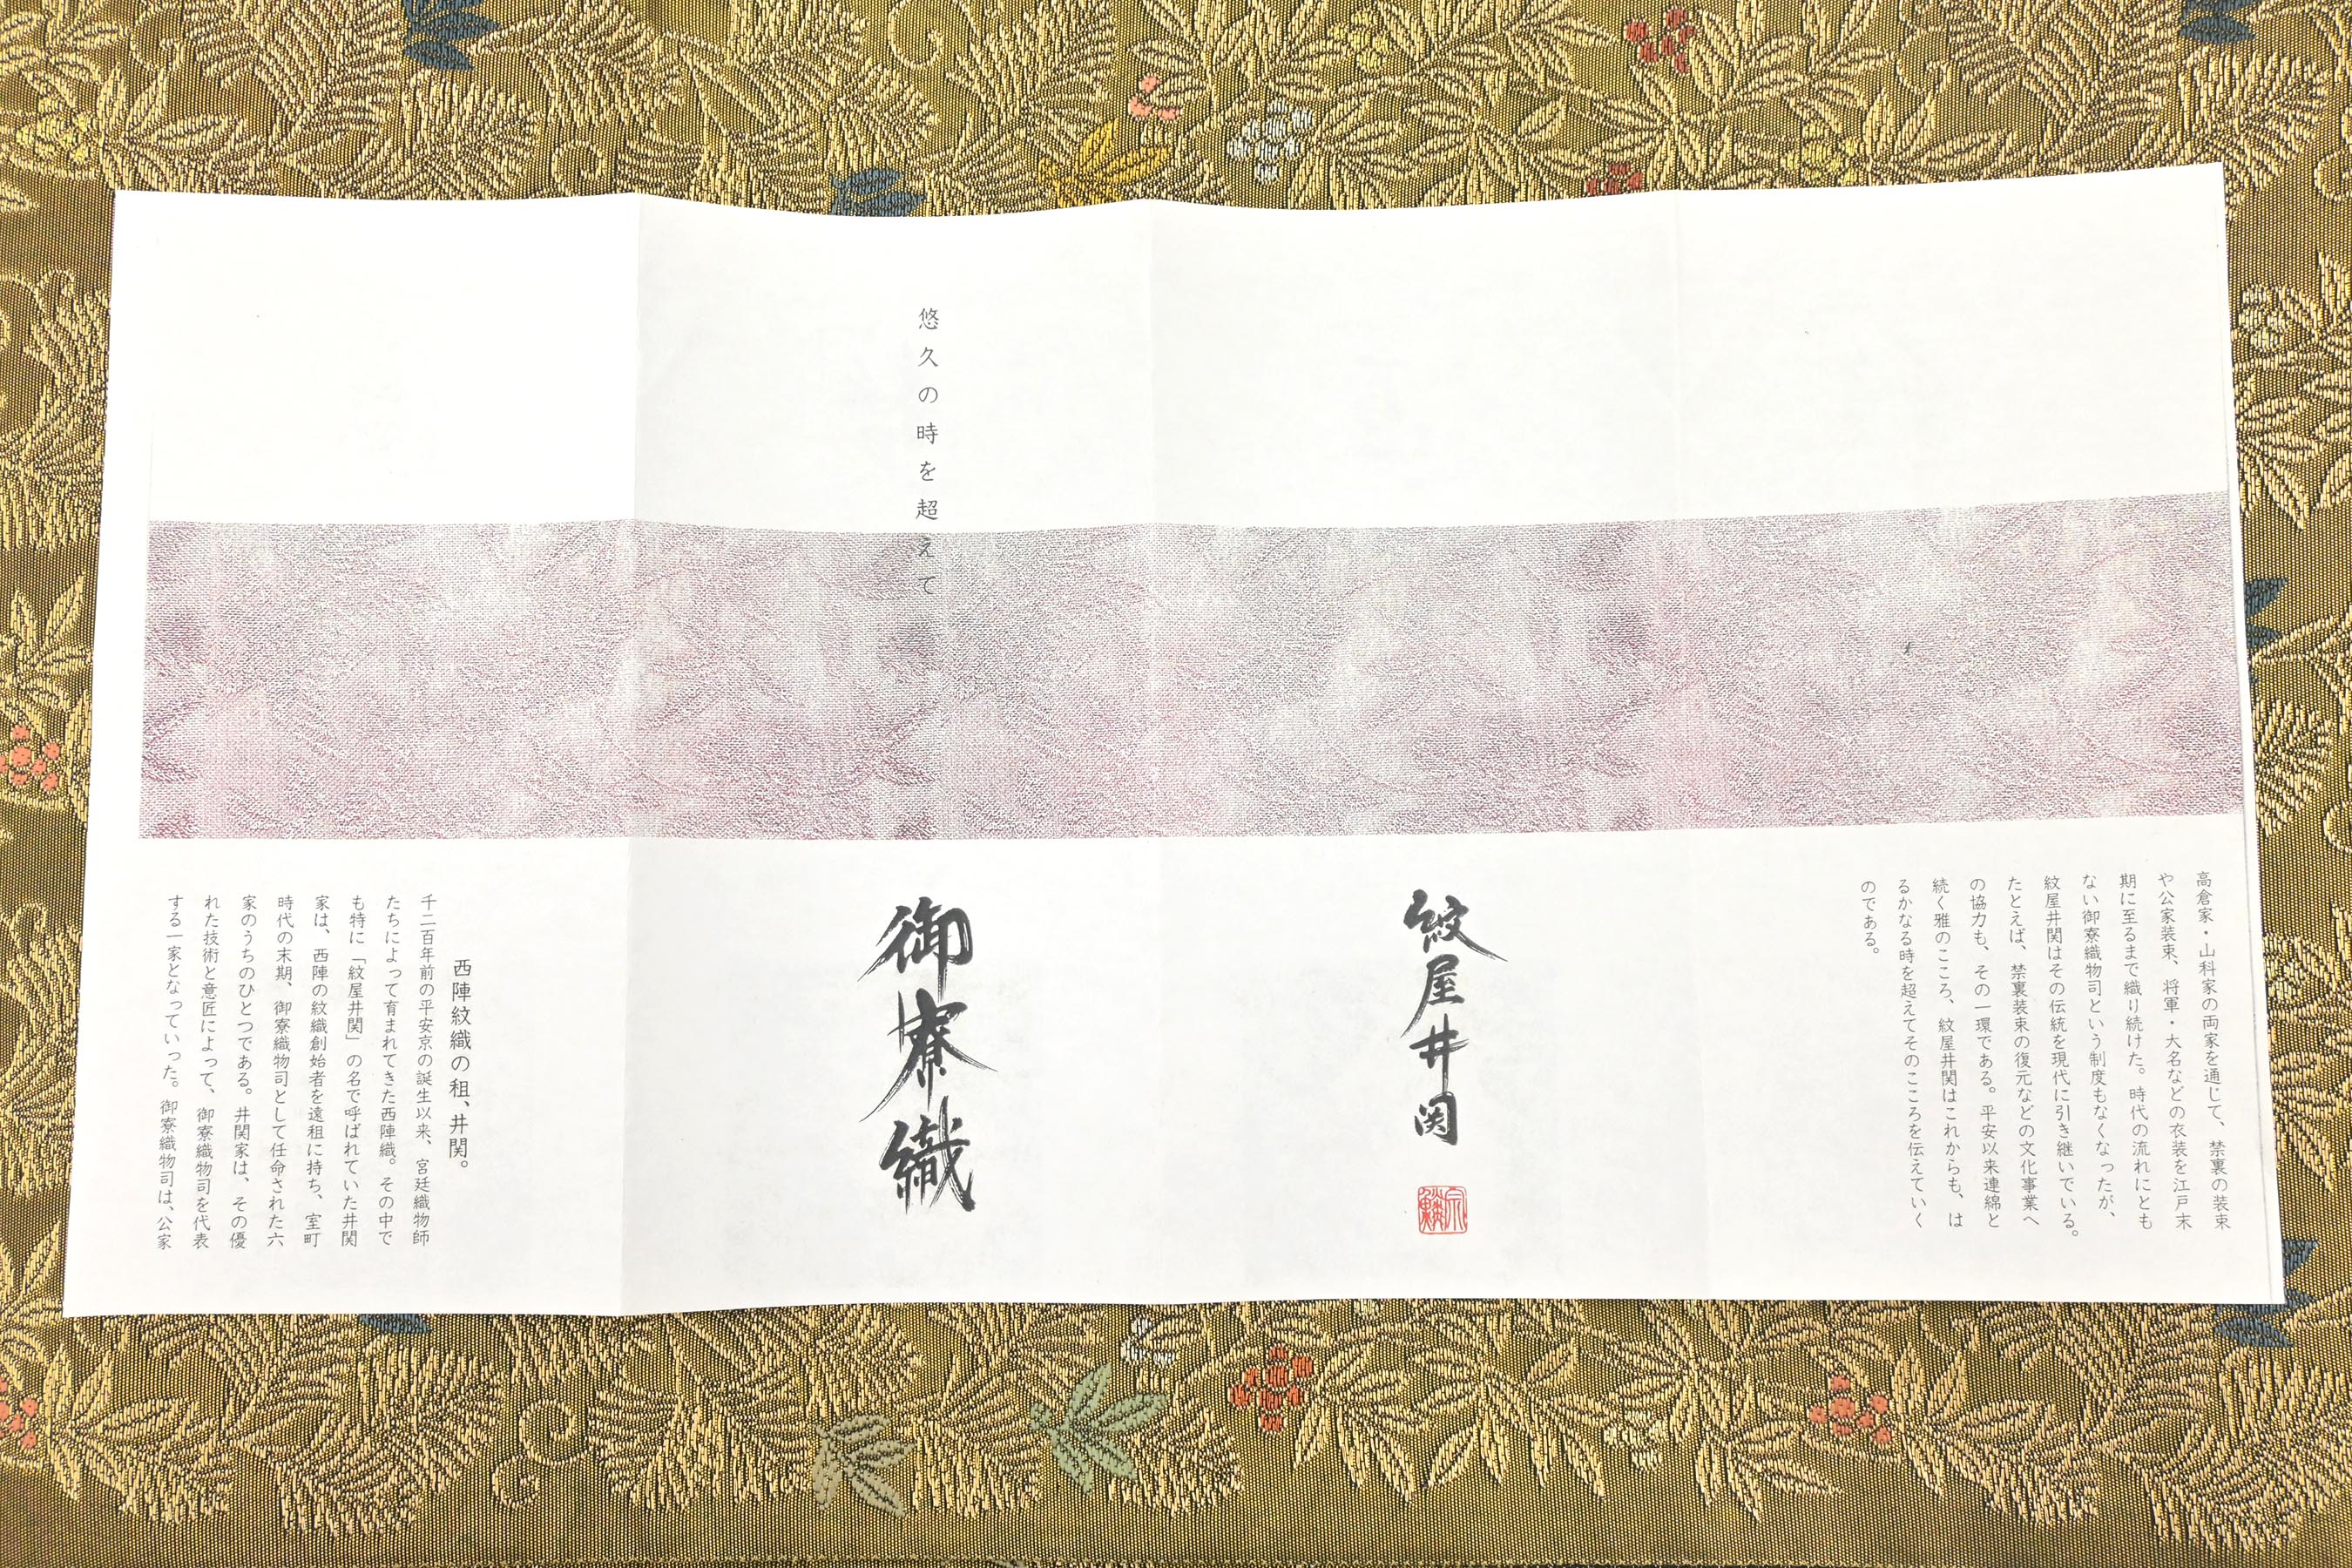 悠久の時を超えて
御寮織
紋屋井関
西陣紋織の租、井関。
千二百年前の平安京の誕生以来、宮廷織物師
たちによって育まれてきた西陣織。その中で
も特に「紋屋井関」の名で呼ばれていた井関
家は、西陣の紋織創始者を遠租に持ち、室町
時代の末期、御寮織物司として任命された六
家のうちのひとつである。井関家は、その優
れた技術と意匠によって、御寮織物司を代表
する一家となっていった。御寮織物司は、公家
高倉家・山科家の両家を通じて、禁裏の装束
や公家装束、将軍・大名などの衣装を江戸末
期に至るまで織り続けた。時代の流れにとも
ない御寮織物司という制度もなくなったが、
紋屋井関はその伝統を現代に引き継いでいる。
たとえば、禁裏装束の復元などの文化事業へ
の協力も、その一環である。平安以来連綿と
続く雅のこころ、紋屋井関はこれからも、は
るかなる時を超えてそのこころを伝えていく
のである。